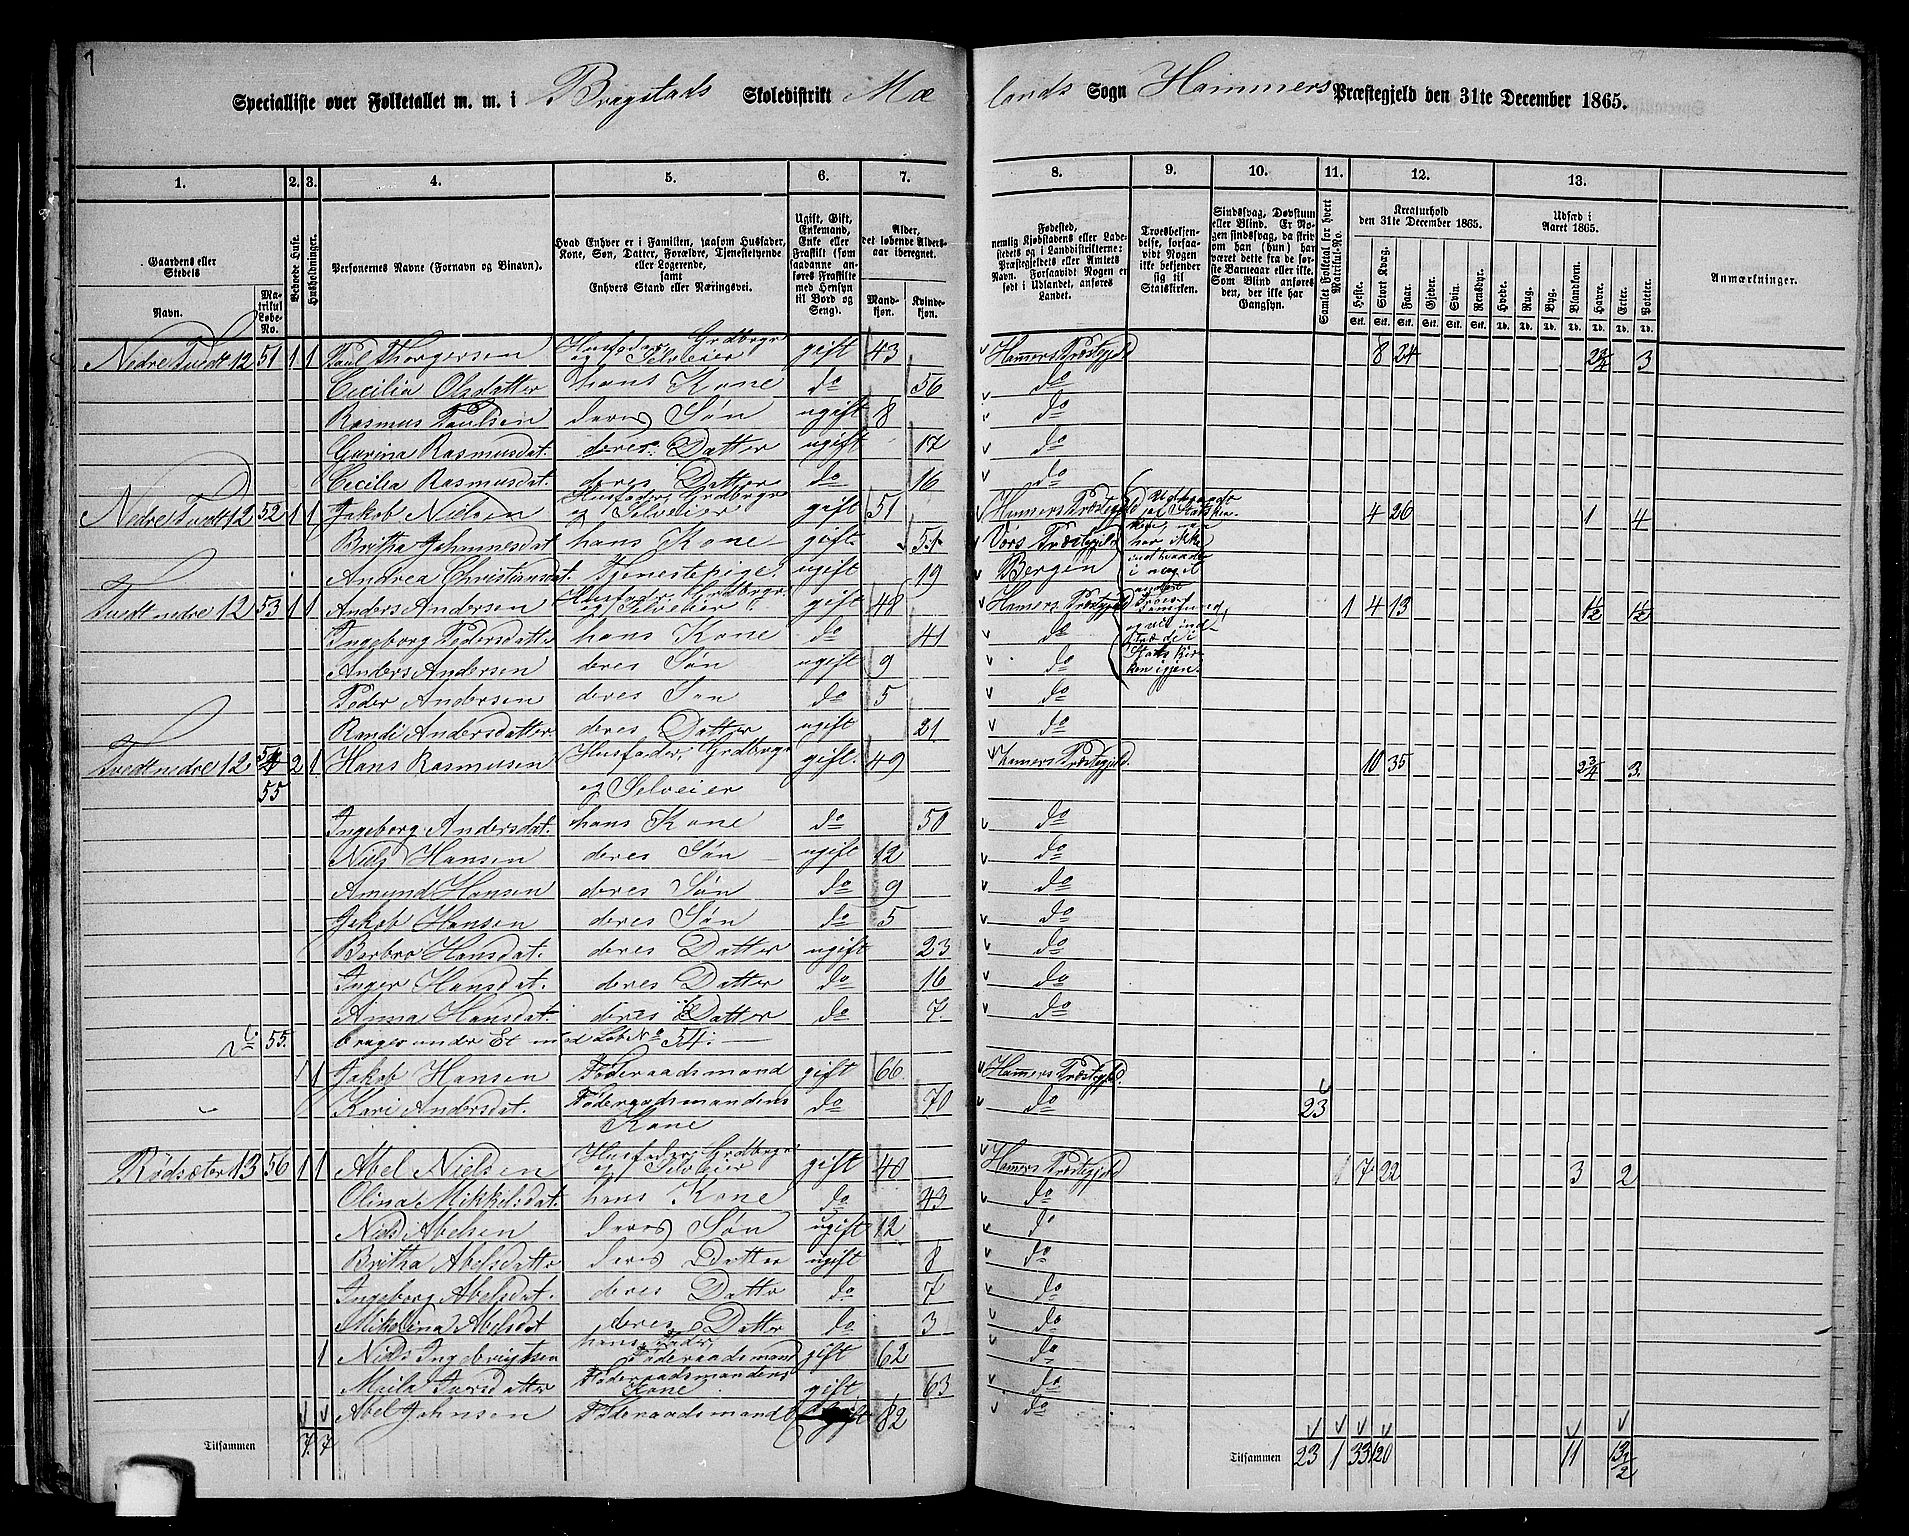 7
Specialliste over Folketallet m. m. i Bragstads Skoledistrikt Mæ lands Sogn Hammers Præstegjeld den 31te December 1865.
1. 2. 3. 4. 5. 6. 7. 8. 9. 10. 11. 12. 13.
Gaardens eller Stedets
Navn.
Matrikul Løbe-No.
Beboede Huse.
Husholdninger.
Personernes Navne (Fornavn og Binavn).
Hvad Enhver er i Familien, saasom Husfader, Kone, Søn, Datter, Forældre, Tjenestetyende eller Logerende, samt Enhvers Stand eller Næringsvei.
Ugift, Gift, Enkemand, Enke eller Fraskilt (som saadanne anføres Fraskilte med Hensyn til Bord og Seng).
Alder, det løbende Alders-aar iberegnet.
Mandkjøn. Kvindekjøn.
Fødested, nemlig Kjøbstadens eller Ladestedets og i Landdistrikterne: Præstegjeldets eller Amtets Navn. Forsaavidt Nogen er født i Udlandet, anføres Landet.
Troesbekjendelse, forsaavidt Nogen ikke bekjender sig til Statskirken.
Sindssvag, Døvstum eller Blind. Er Nogen sindssvag, da skrives om han (hun) har været dette fra de første Barneaar eller ikke. Som Blind anføres den, der ikke har Gangsyn.
Samlet Folketal for hvert Matrikul-No.
Kreaturhold den 31te December 1865.
Heste. Stort Kvæg. Faar. Gjeder. Svin. Rensdyr.
Udsæd i Aaret 1865.
Hvede. Rug. Byg. Blandkorn. Havre. Erter. Poteter.
Anmærkninger.
Nedre Tvedt 12 51 1 1 Paul Thorgersen Husfader, Grdbrgr og Selveier gift 43 Hamers Præstegjeld 8 24 2¾ 3
Cecilia Olsdatter hans Kone do 56 do
Rasmus Paulsen deres Søn ugift 8 do
Gurina Rasmusdat. deres Datter ugift 17 do
Cecilia Rasmusdat. deres Datter do 16 do
Nedre Tvedt 12 52 1 1 Jakob Nielsen Husfader, Grdbrgr og Selveier gift 51 Hamers Præstegjeld 4 26 1 4
Britha Johannesdat. hans Kone gift 51 Vors Præstegjeld
Andrea Christiansdat. Tjenestepige ugift 19 Bergen
Tvedt nedre 12 53 1 1 Anders Andersen Husfader, Grdbrgr og Selveier gift 48 Hamers Præstegjeld 1 4 13 1½ 1½
Ingeborg Pedersdatter hans Kone do 41 do
Anders Andersen deres Søn ugift 9 do
Peder Andersen deres Søn do 5 do
Randi Andersdatter deres Datter ugift 21 do
Tvedt nedre 12 54 2 1 Hans Rasmusen Husfader, Grdbrgr gift 49 Hamers Præstegjeld 10 35 2¾ 3
55 og Selveier
Ingeborg Andersdat. hans Kone do 50 do
Niels Hansen deres Søn ugift 12 do
Amund Hansen deres Søn do 9 do
Jakob Hansen deres Søn do 5 do
Barbro Hansdat. deres Datter ugift 23 do
Inger Hansdat. deres Datter do 16 do
Anna Hansdat. deres Datter do 7 do
do 55. bruges under Et med Løb No 54.
1 1 Jakob Hansen Føderaadsmand gift 66 Hamers Præstegjeld.
Kari Andersdat. Føderaadsmandens Kone do 70 do 23
Rødsæter 13 56 1 1 Abel Nielsen Husfader, Grdbrgr og Selveier gift 40 Hamers Præstegjeld 1 7 22 3 2
Olina Mikkelsdat. hans Kone do 43 do
Niels Abelsen deres Søn ugift 12 do
Britha Abelsdatter deres Datter ugift 8 do
Ingeborg Abelsdat. deres Datter do 7 do
Mikelina Abelsdat deres Datter do 3 do
1 Niels Ingebrigtsen hans Fader, Føderaadsmand gift 62 do
Føderaadsmandens Kone gift 63 do
Abel Johnsen Føderaadsmand 82 do
Tilsammen 7. 7
Tilsammen 23 1 33 120 11 13½